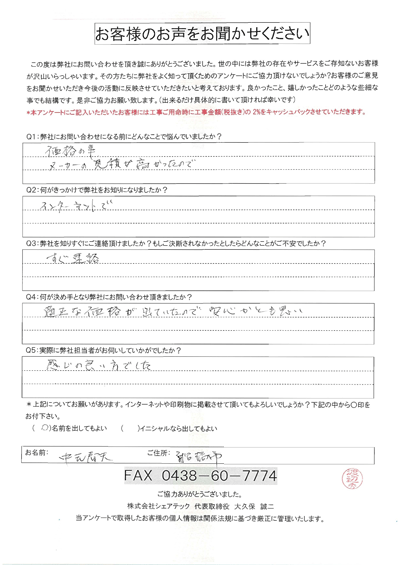 お客様のお声をお聞かせください
この度は弊社にお問い合わせを頂き誠にありがとうございました。世の中には弊社の存在やサービスをご存知ないお客様
が沢山いらっしゃいます。その方たちに弊社をよく知って頂くためのアンケートにご協力頂けないでしょうか?お客様のご意見
をお聞かせいただき今後の活動に反映させていただきたいと考えております。良かったこと、嬉しかったことどのような些細な
事でも結構です。是非ご協力お願い致します。(出来るだけ具体的に書いて頂ければ幸いです)
*本アンケートにご記入いただいたお客様には工事ご用命時に工事金額(税抜き)の2%をキャッシュバックさせていただきます。
Q1:弊社にお問い合わせになる前にどんなことで悩んでいましたか?
価格の事
メーカーの見積が高かったので
Q2:何がきっかけで弊社をお知りになりましたか?
インターネットで
Q3:弊社を知りすぐにご連絡頂けましたか?もしご決断されなかったとしたらどんなことがご不安でしたか?
すぐ連絡
Q4:何が決め手となり弊社にお問い合わせ頂きましたか?
適正な価格が出ていたので 安心かとも思い
Q5:実際に弊社担当者がお伺いしていかがでしたか?
感じの良い方でした
*上記についてお願いがあります。インターネットや印刷物に掲載させて頂いてもよろしいでしょうか?下記の中から〇印を
お付下さい。
(〇)名前を出してもよい ( )イニシャルなら出してもよい
お名前: ご住所: 船橋市
FAX 0438-60-7774
ご協力ありがとうございました。
株式会社シェアテック 代表取締役 大久保 誠二
当アンケートで取得したお客様の個人情報は関係法規に基づき厳正に管理いたします。